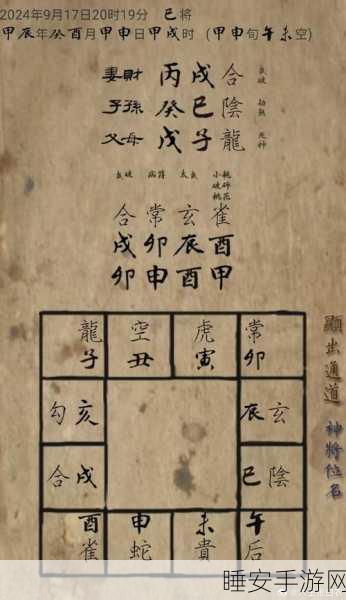 2024年9月17日20时19分 巳将
甲辰年癸酉月甲申日甲戌时 (甲申旬午未空)
妻財 丙戌合
子孫 癸巳陰
父母 戊子龍
合常玄雀
戌卯辰酉
卯申酉甲
龍子 空丑 虎寅 常卯
勾亥 辰玄
合戌 巳陰
酉雀 申蛇 未貴 午后
顯出通道
神將位名
睡安手游网